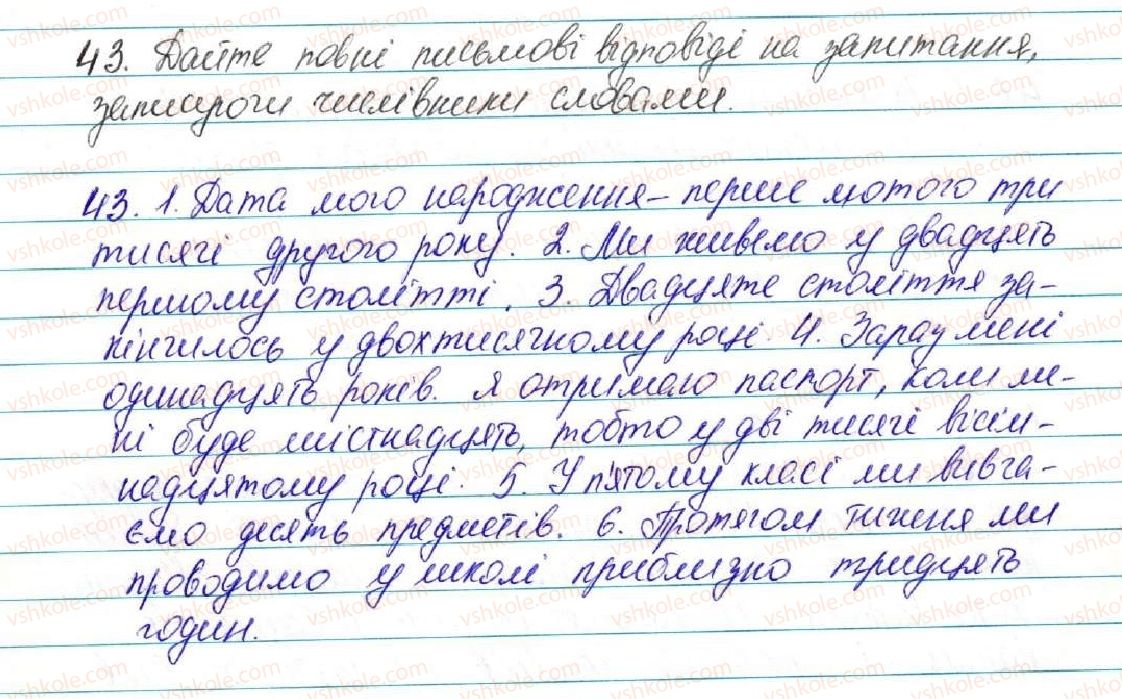 43. Дайте повні письмові відповіді на запитання,
записуючи числівники словами.
43. 1. Дата мого народження – перше лютого три
тисячі другого року. 2. Ми живемо у двадцять
першому столітті. 3. Двадцяте століття за-
кінчилось у двохтисячному році. 4. Зараз мені
одинадцять років. Я отримаю паспорт, коли ме-
ні буде шістнадцять, тобто у дві тисячі вісім-
надцятому році. 5. У п'ятому класі ми вивча-
ємо десять предметів. 6. Протягом тижня ми
проводимо у школі приблизно тридцять
годин.